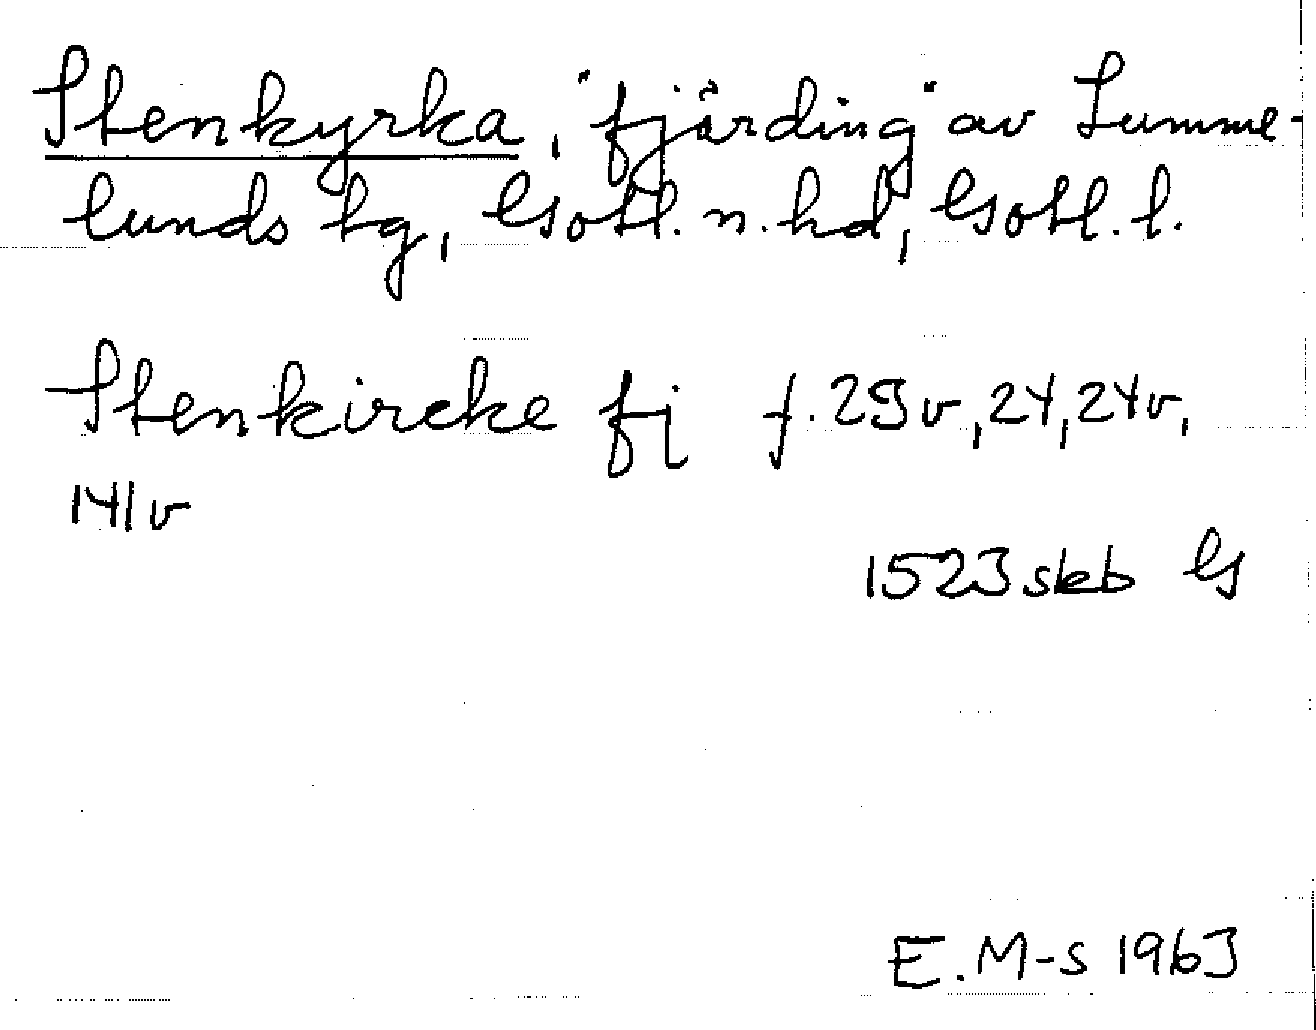 Stenkyrka, "fjärding" av Lumme-
lunds tg, Gotl. n. hd, Gotl. l.
Stenkircke fj f. 23v, 24, 24v,
141v
1523 skb G
E. M-s 1963